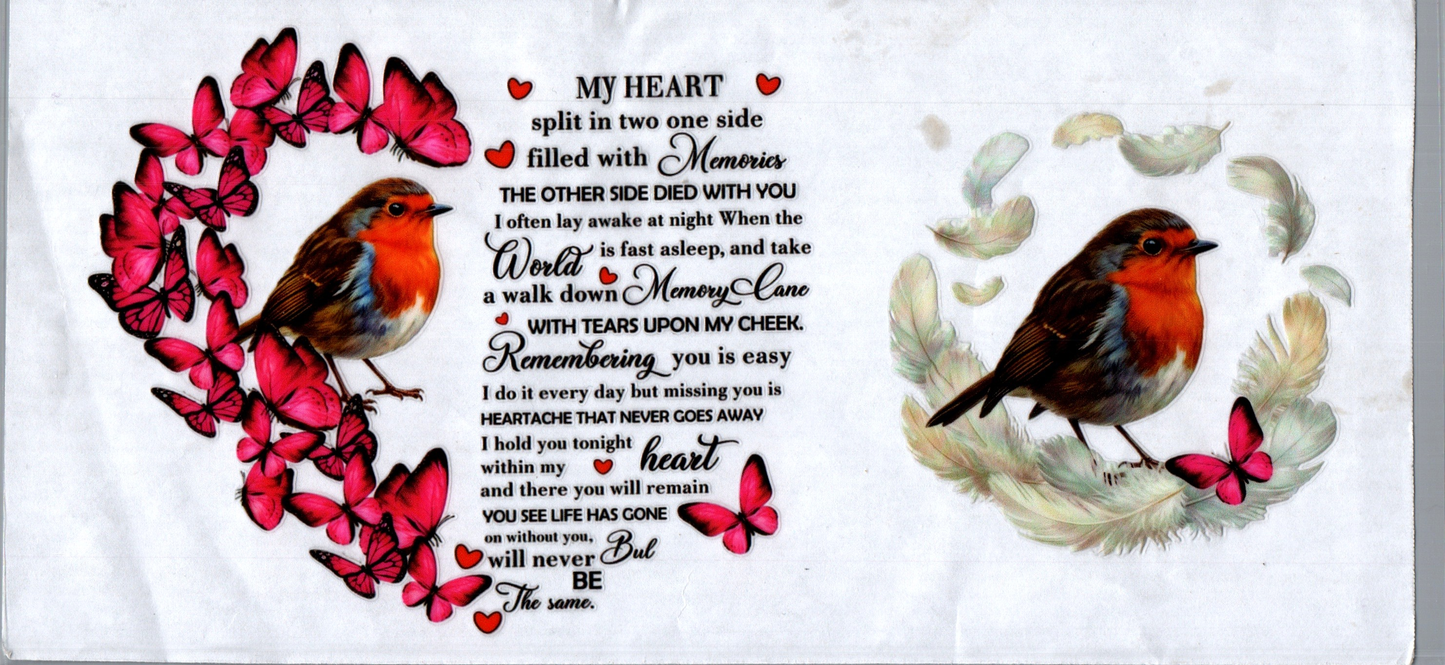 MY HEART
split in two one side
filled with Memories
THE OTHER SIDE DIED WITH YOU
I often lay awake at night When the
World is fast asleep, and take
a walk down Memory Lane
WITH TEARS UPON MY CHEEK.
Remembering you is easy
I do it every day but missing you is
HEARTACHE THAT NEVER GOES AWAY
I hold you tonight
within my heart
and there you will remain
YOU SEE LIFE HAS GONE
on without you,
will never But
BE
The same.